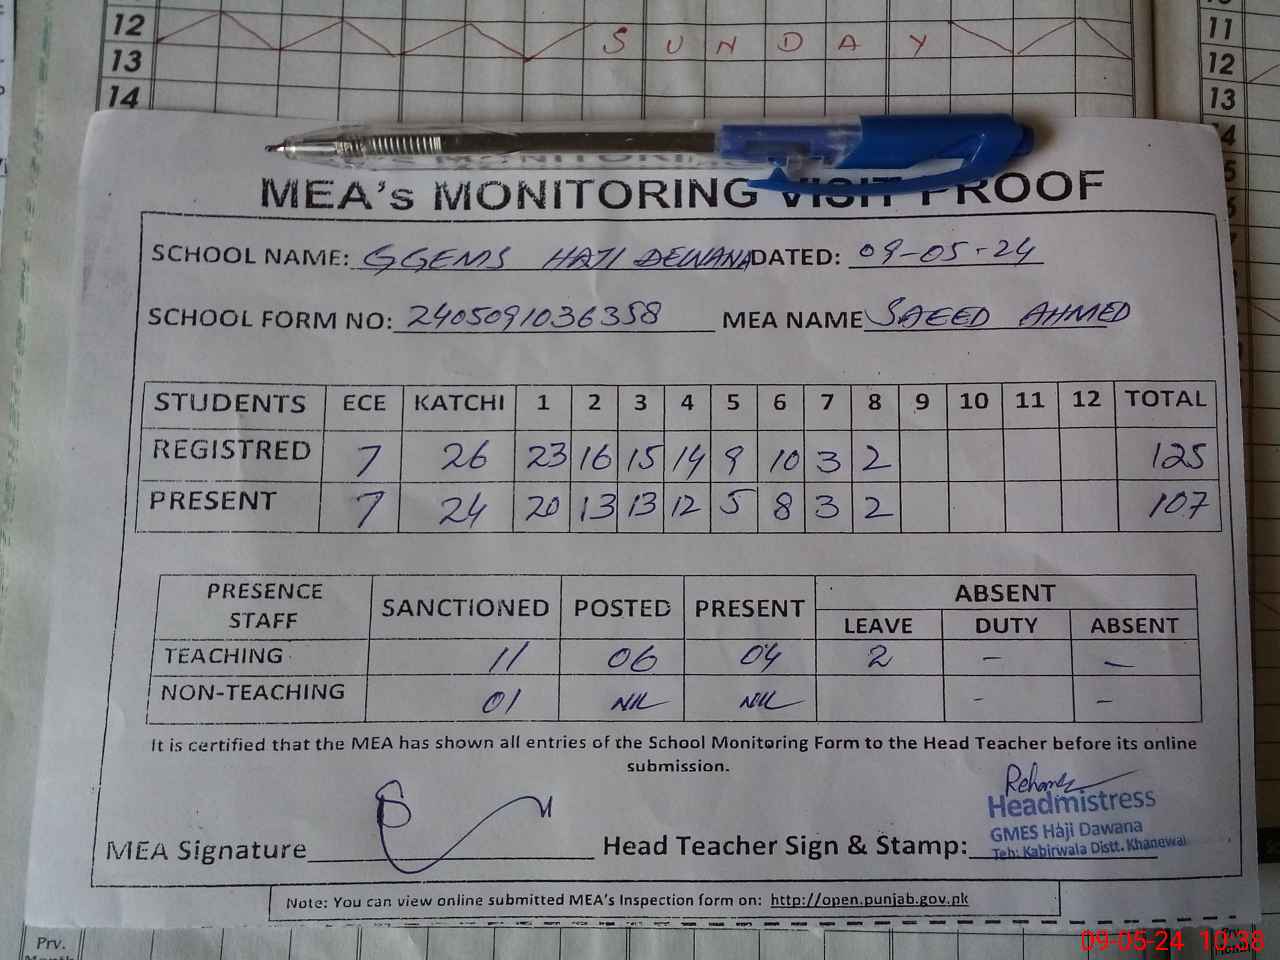 12 11
S U N D A Y
13 12
14 13
MEA's MONITORING VISIT PROOF
SCHOOL NAME: GGEMS HAJI DEWANA DATED: 09-05-24
SCHOOL FORM NO: 2405091036358 MEA NAME SAEED AHMED
STUDENTS ECE KATCHI 1 2 3 4 5 6 7 8 9 10 11 12 TOTAL
REGISTRED 7 26 23 16 15 14 9 10 3 2 125
PRESENT 7 24 20 13 13 12 5 8 3 2 107
PRESENCE STAFF SANCTIONED POSTED PRESENT ABSENT
LEAVE DUTY ABSENT
TEACHING 11 06 04 2 - -
NON-TEACHING 01 NIL NIL - -
It is certified that the MEA has shown all entries of the School Monitoring Form to the Head Teacher before its online
submission.
Headmistress
GMES Haji Dawana
Teh: Kabirwala Distt. Khanewal
MEA Signature Head Teacher Sign & Stamp:
Note: You can view online submitted MEA's Inspection form on: http://open.punjab.gov.pk
Prv.
Month
09-05-24 10:38